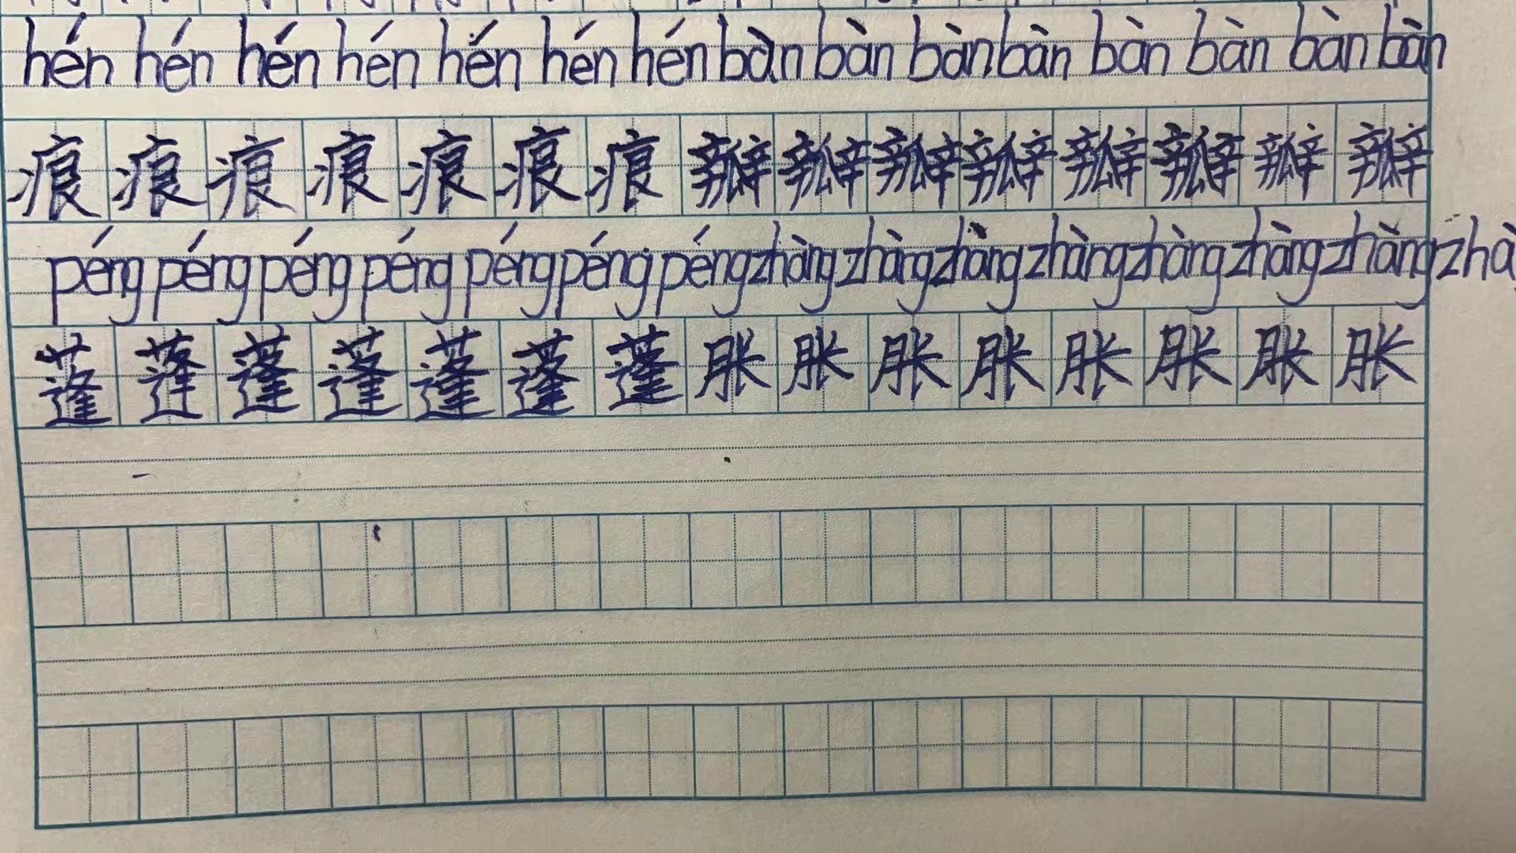 hén hén hén hén hén hén hén bàn bàn bàn bàn bàn bàn bàn bàn
痕 痕 痕 痕 痕 痕 痕 瓣 瓣 瓣 瓣 瓣 瓣 瓣 瓣
péng péng péng péng péng péng péng zhàng zhàng zhàng zhàng zhàng zhàng zhàng zhà
蓬 蓬 蓬 蓬 蓬 蓬 蓬 胀 胀 胀 胀 胀 胀 胀 胀